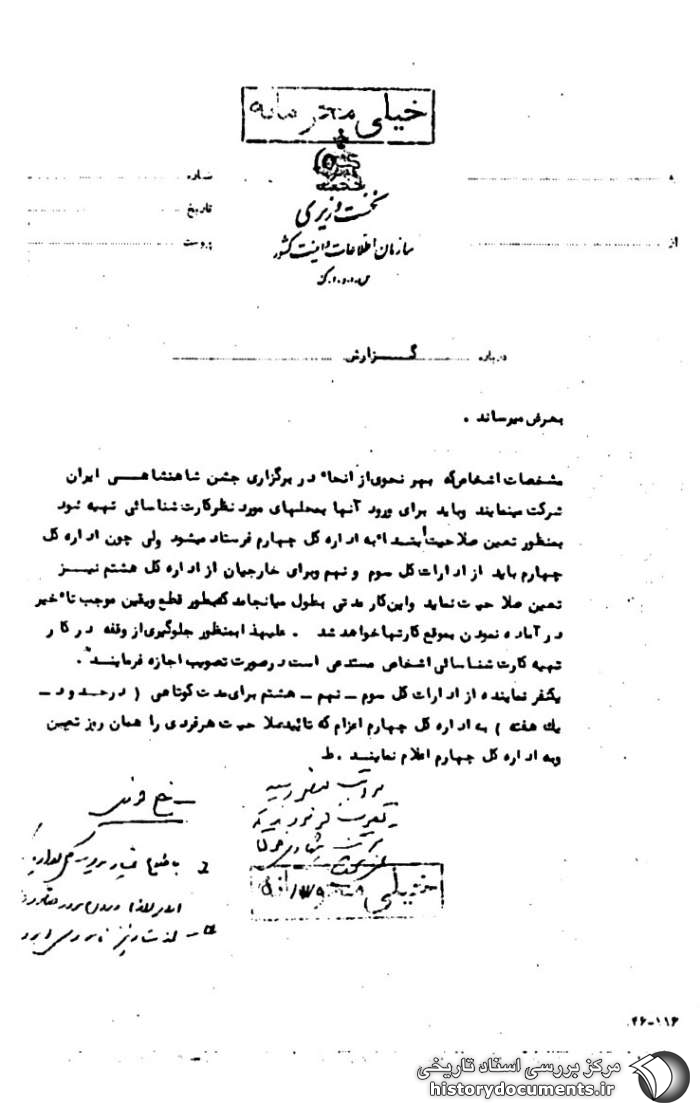 خیلی محرمانه
نخست وزیری
سازمان اطلاعات و امنیت کشور
س.ا.و.ا.ک
به
شماره
تاریخ
از
پیوست
درباره گـــزارش
بعرض میرساند .
مشخصات اشخاص که بهر نحوی از انحاء در برگزاری جشن شاهنشاهـــی ایران
شرکت مینمایند وباید برای ورود آنها بمحلهای مورد نظر کارت شناسائی تهیه شود
بمنظور تعیین صلاحیت بنــد اٴ به اداره کل چهارم فرستاد میشود ولی چون اداره کل
چهارم باید از ادارات کل سوم و نهم وبرای خارجیان از اداره کل هشتم نیــز
تعیین صلاحیت نماید واین کار مدتی بطول میانجامد که بطور قطع ویقین موجب تاٴخیر
در آماده نمودن بموقع کارتها خواهد شد . علیهذا بمنظور جلوگیری از وقفه در کار
تهیه کارت شناسائی اشخاص مستدعی است در صورت تصویب اجازه فرماینــد .
یکنفر نماینده از ادارات کل سوم ـ نهم ـ هشتم برای مدت کوتاهی ( در حــدود ـ
یك هفته ) به اداره کل چهارم اعزام که تائید صلاحیت هر فردی را همان روز تعیین
وبه اداره کل چهارم اعلام نماینــد . ط
خیلی محرمانه
۴۶-۱۱۶
مرکز بررسی اسناد تاریخی
historydocuments.ir